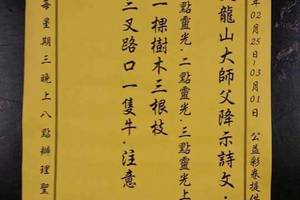 年02月25日~03月01日 公益彩券提供
龍山大師父降示詩文·
一點靈光·二點靈光·三點靈光上
一棵樹木三根枝
三叉路口一隻牛·注意
每星期三晚上八點辦理聖